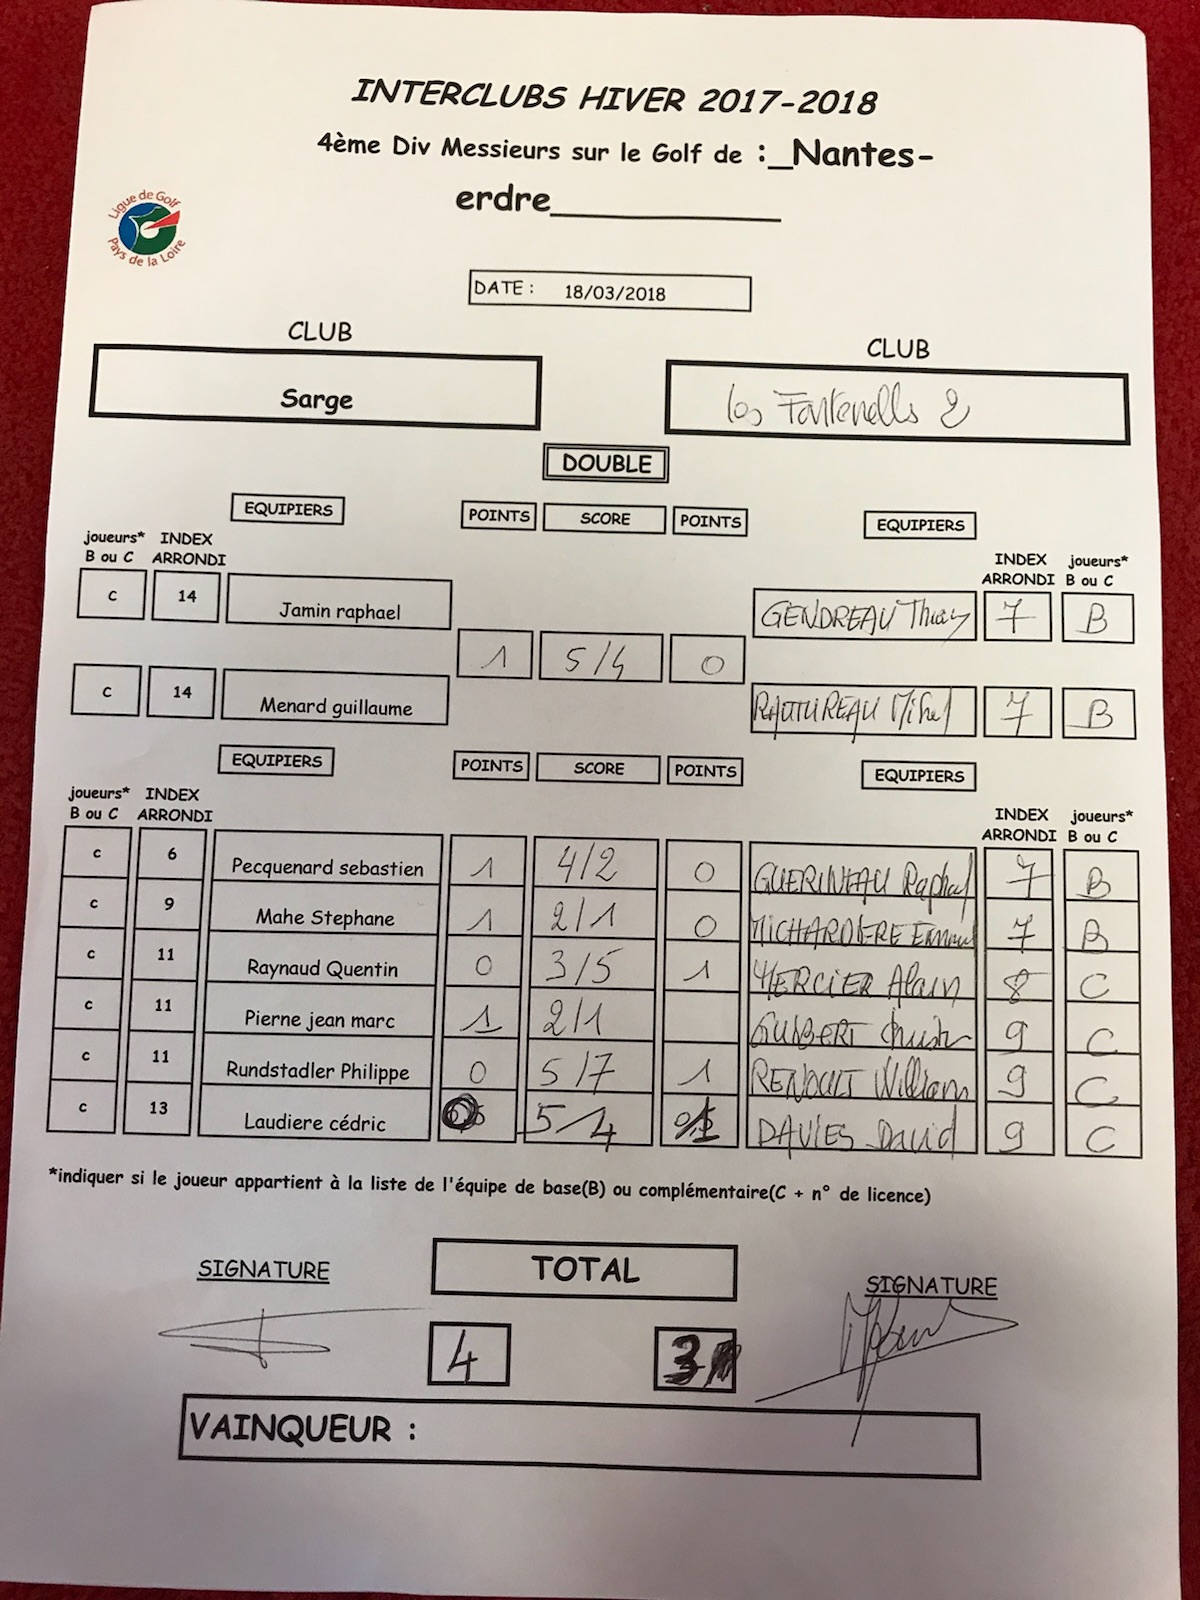 INTERCLUBS HIVER 2017-2018
4ème Div Messieurs sur le Golf de :_Nantes-
erdre____________
Ligue de Golf
Pays de la Loire
DATE : 18/03/2018
CLUB CLUB
Sarge Les Fontenelles 2
DOUBLE
EQUIPIERS POINTS SCORE POINTS EQUIPIERS
joueurs* INDEX INDEX joueurs*
B ou C ARRONDI ARRONDI B ou C
C 14 Jamin raphael GENDREAU Thierry 7 B
1 5/4 0
C 14 Menard guillaume RAUTUREAU Michel 7 B
EQUIPIERS POINTS SCORE POINTS EQUIPIERS
joueurs* INDEX INDEX joueurs*
B ou C ARRONDI ARRONDI B ou C
C 6 Pecquenard sebastien 1 4/2 0 GUERINEAU Raphael 7 B
C 9 Mahe Stephane 1 2/1 0 7 B
C 11 Raynaud Quentin 0 3/5 1 MERCIER Alain 8 C
C 11 Pierne jean marc 1 2/1 9 C
C 11 Rundstadler Philippe 0 5/7 1 RENOULT William 9 C
C 13 Laudiere cédric 5/4 1 DAVIES David 9 C
*indiquer si le joueur appartient à la liste de l'équipe de base(B) ou complémentaire(C + n° de licence)
SIGNATURE TOTAL SIGNATURE
4 3
VAINQUEUR :